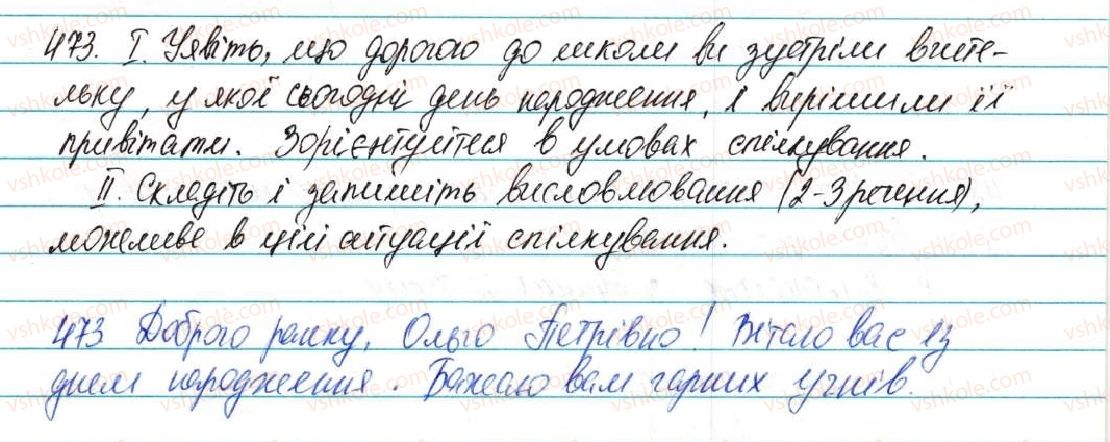 473. І. Уявіть, що дорогою до школи ви зустріли вчите-
льку, у якої сьогодні день народження, і вирішили її
привітати. Зорієнтуйтеся в умовах спілкування.
ІІ. Складіть і запишіть висловлювання (2-3 речення),
можливе в цій ситуації спілкування.
473 Доброго ранку, Ольго Петрівно! Вітаю вас із
днем народження. Бажаю вам гарних учнів.